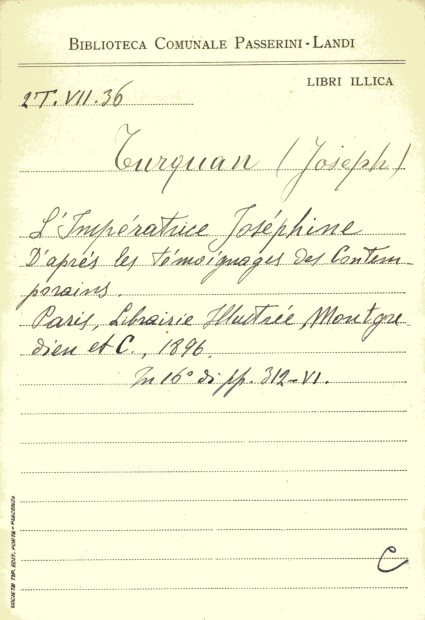 BIBLIOTECA COMUNALE PASSERINI-LANDI
LIBRI ILLICA
2T.VII.36
Turquan (Joseph)
L'Impératrice Joséphine
D'aprés les témoignages des Contem-
porains.
Paris, Librairie Illustrée, Montgre
dien et C., 1896.
In 16° di pp. 312-VI.
C
SOCIETÀ TIP. EDIT. PORTA - PIACENZA